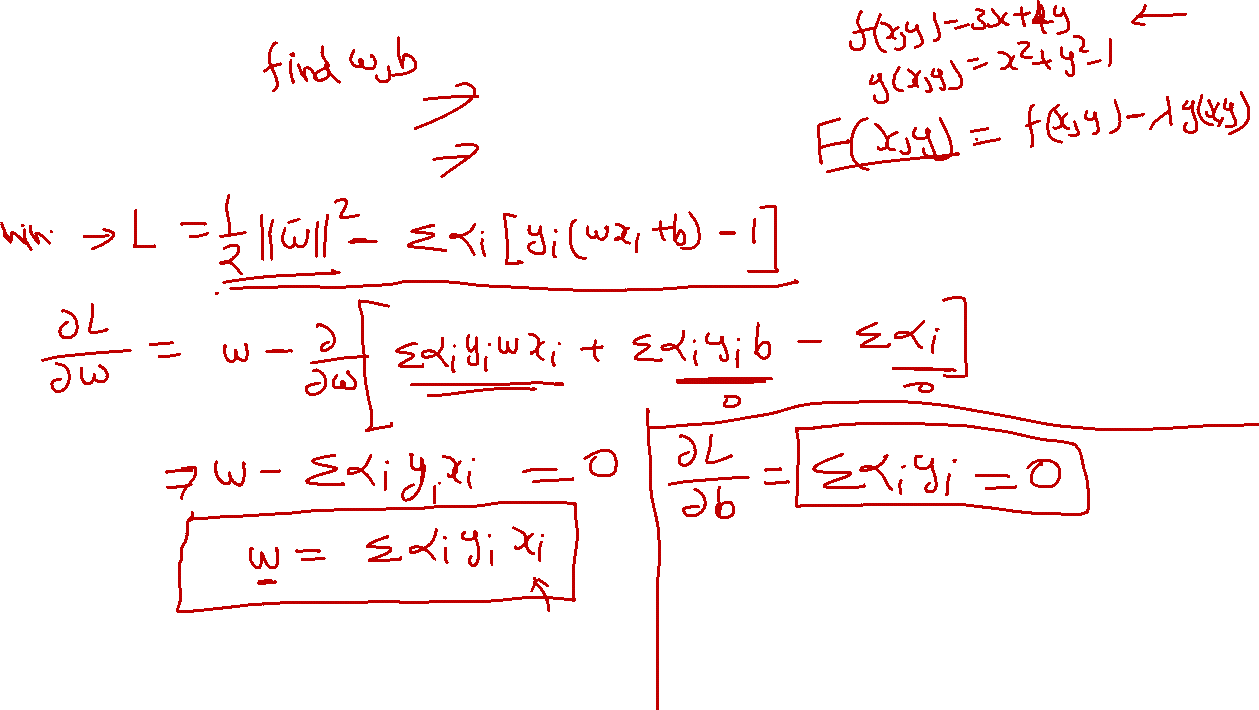 find w, b
f(x,y) = 3x + 4y ←
g(x,y) = x² + y² - 1
F(x,y) = f(x,y) - λ g(x,y)
min. → L = 1/2 ||w̄||² - Σ αᵢ [yᵢ(wxᵢ + b) - 1]
∂L/∂w = w - ∂/∂w [Σαᵢyᵢwxᵢ + Σαᵢyᵢb - Σαᵢ]
0 0
⇒ w - Σαᵢyᵢxᵢ = 0
∂L/∂b = Σαᵢyᵢ = 0
w = Σαᵢyᵢxᵢ